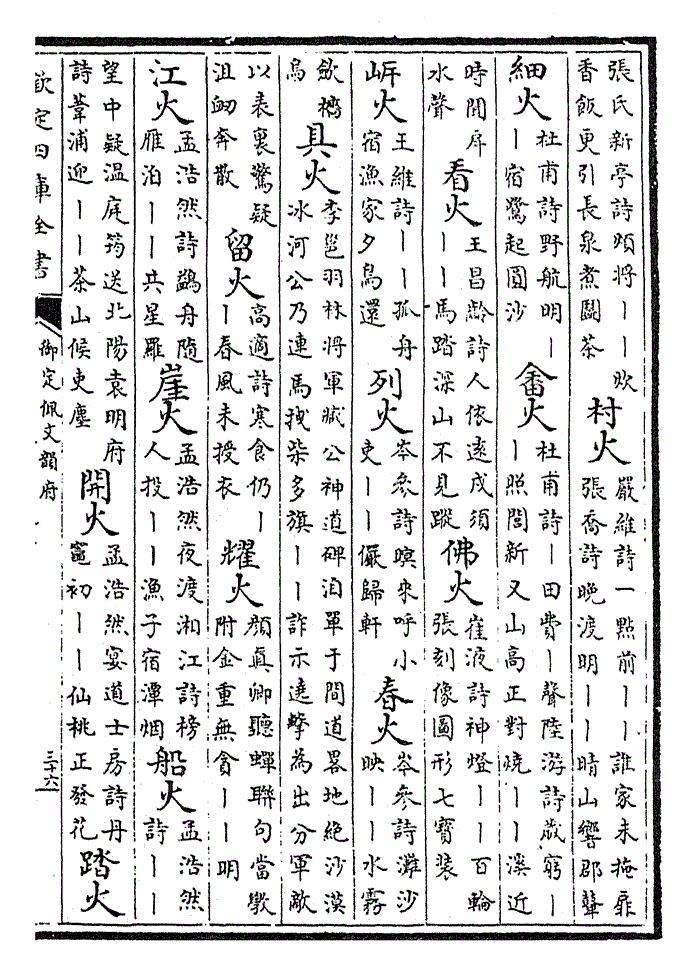 張氏新亭詩頻將丨丨吹
香飯更引長泉煮鬭茶
村火
嚴維詩一點前丨丨誰家未掩扉
張喬詩晚渡明丨丨晴山響郡鼙
細火
杜甫詩野航明丨
丨宿鷺起圓沙
畬火
杜甫詩丨田費丨聲陸游詩歲窮丨
丨照閭新又山高正對燒丨丨溪近
時聞戽
水聲
看火
王昌齡詩人依遠戍須
丨丨馬踏深山不見蹤
佛火
崔液詩神燈丨丨百輪
張刻像圖形七寶裝
㟁火
王維詩丨丨孤舟
宿漁家夕鳥還
列火
岑參詩暝來呼小
吏丨丨儼歸軒
春火
岑參詩灘沙
映丨丨水霧
斂檣
烏
具火
李邕羽林將軍臧公神道碑洎單于間道畧地絶沙漠
冰河公乃連馬拽柴多旗丨丨詐示逵擊為出分軍敵
以表裏驚疑
沮衂奔散
留火
高適詩寒食仍丨
丨春風未授衣
耀火
顔真卿聽蟬聯句當斆
附金重無貪丨丨明
江火
孟浩然詩鷁舟隨
雁泊丨丨共星羅
崖火
孟浩然夜渡湘江詩榜
人投丨丨漁子宿潭烟
船火
孟浩然
詩丨丨
望中疑温庭筠送北陽袁明府
詩葦浦迎丨丨茶山候吏塵
開火
孟浩然宴道士房詩丹
竈初丨丨仙桃正發花
踏火
欽定四庫全書
御定佩文韻府
三十六